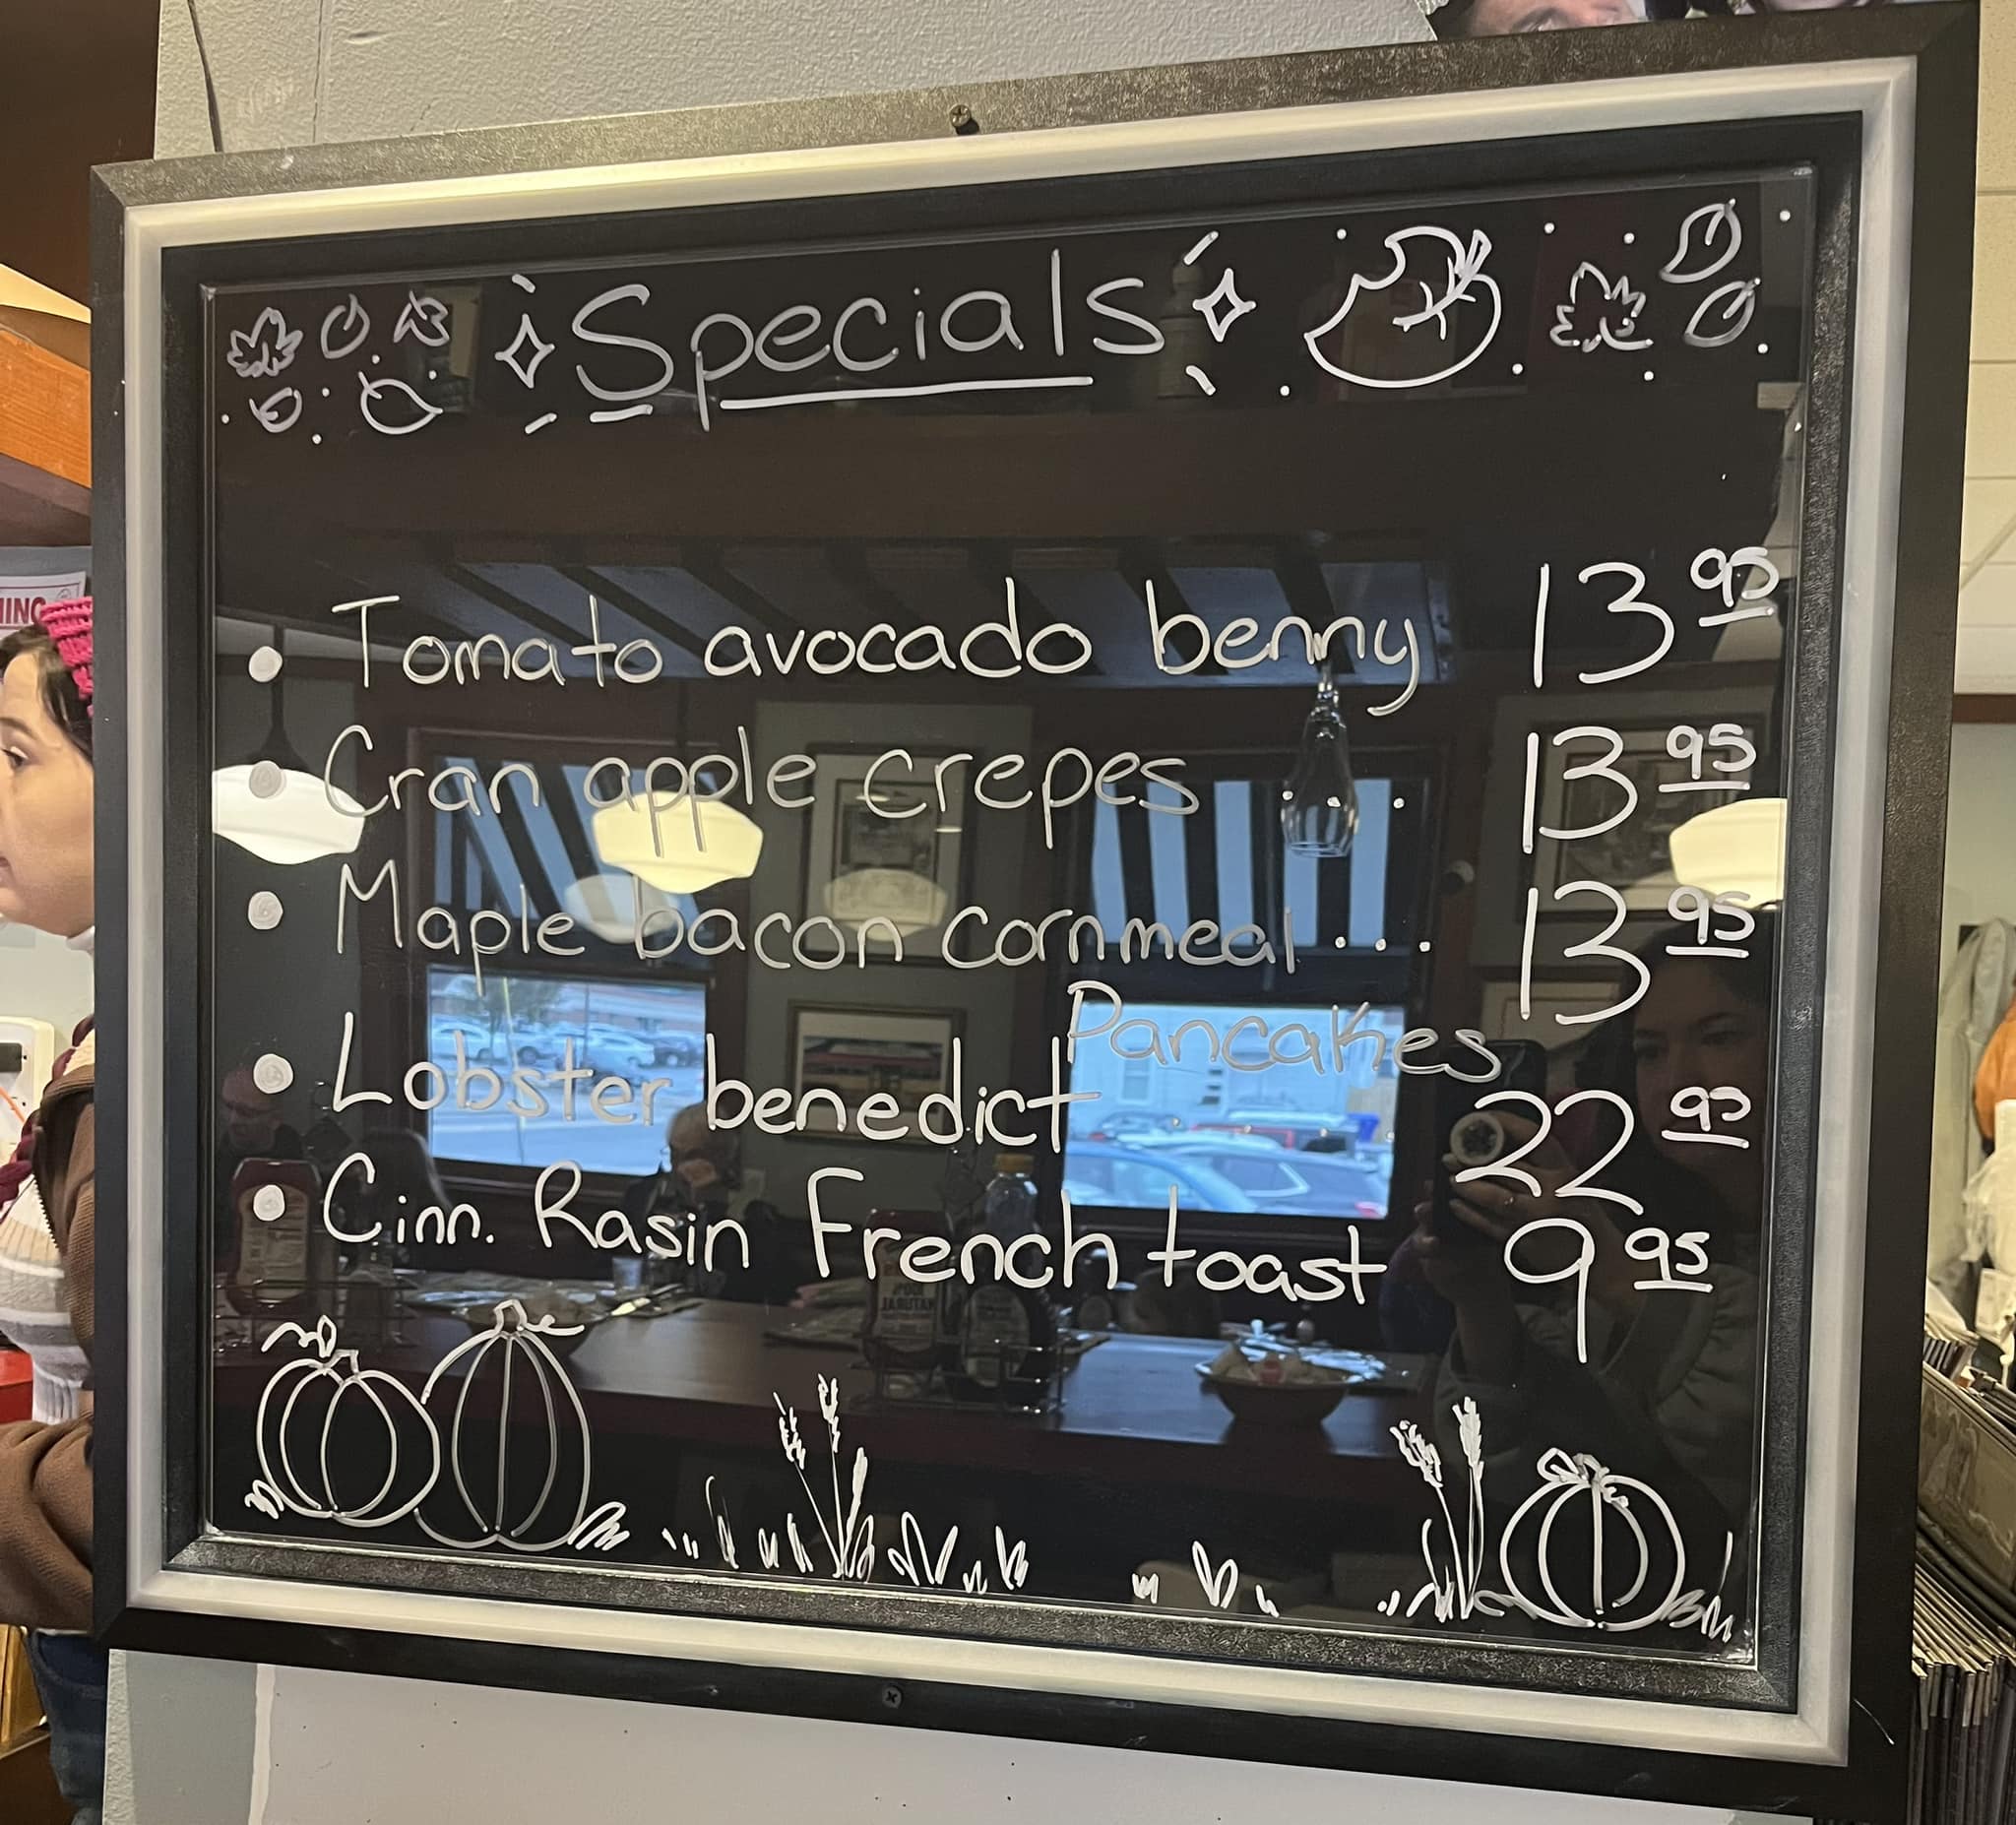 Specials
• Tomato avocado benny 13 95
• Cran apple crepes ... 13 95
• Maple bacon cornmeal ... 13 95
Pancakes
• Lobster benedict 22 95
• Cinn. Rasin French toast 9 95